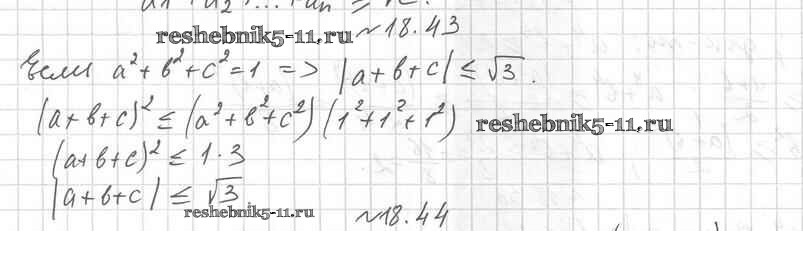 reshebnik5-11.ru №18.43
Если a²+b²+c²=1 => |a+b+c| ≤ √3.
(a+b+c)² ≤ (a²+b²+c²)(1²+1²+1²) reshebnik5-11.ru
(a+b+c)² ≤ 1·3
|a+b+c| ≤ √3
reshebnik5-11.ru №18.44